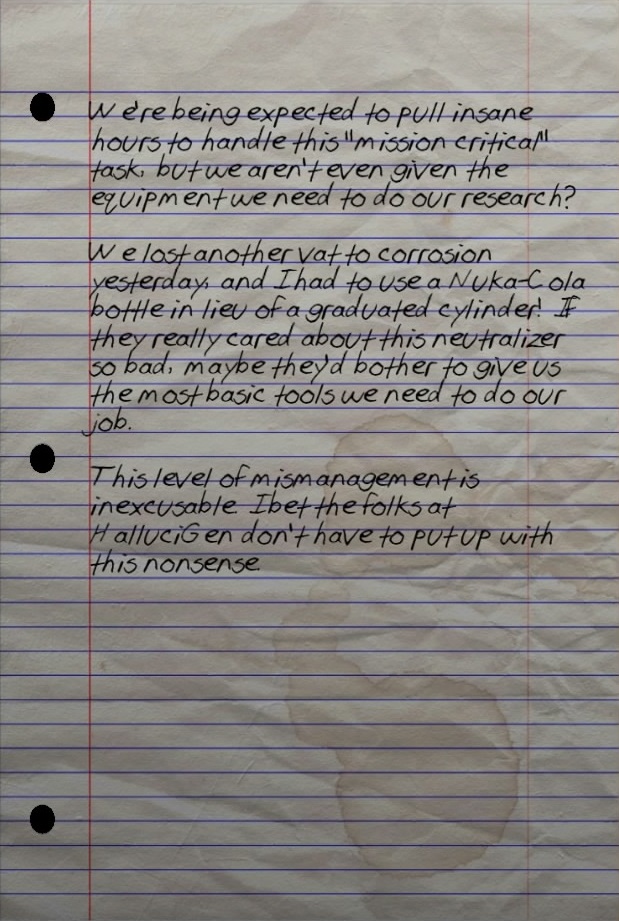 We're being expected to pull insane
hours to handle this "mission critical"
task, but we aren't even given the
equipment we need to do our research?
We lost another vat to corrosion
yesterday, and I had to use a Nuka-Cola
bottle in lieu of a graduated cylinder! If
they really cared about this neutralizer
so bad, maybe they'd bother to give us
the most basic tools we need to do our
job.
This level of mismanagement is
inexcusable. I bet the folks at
HalluciGen don't have to put up with
this nonsense.